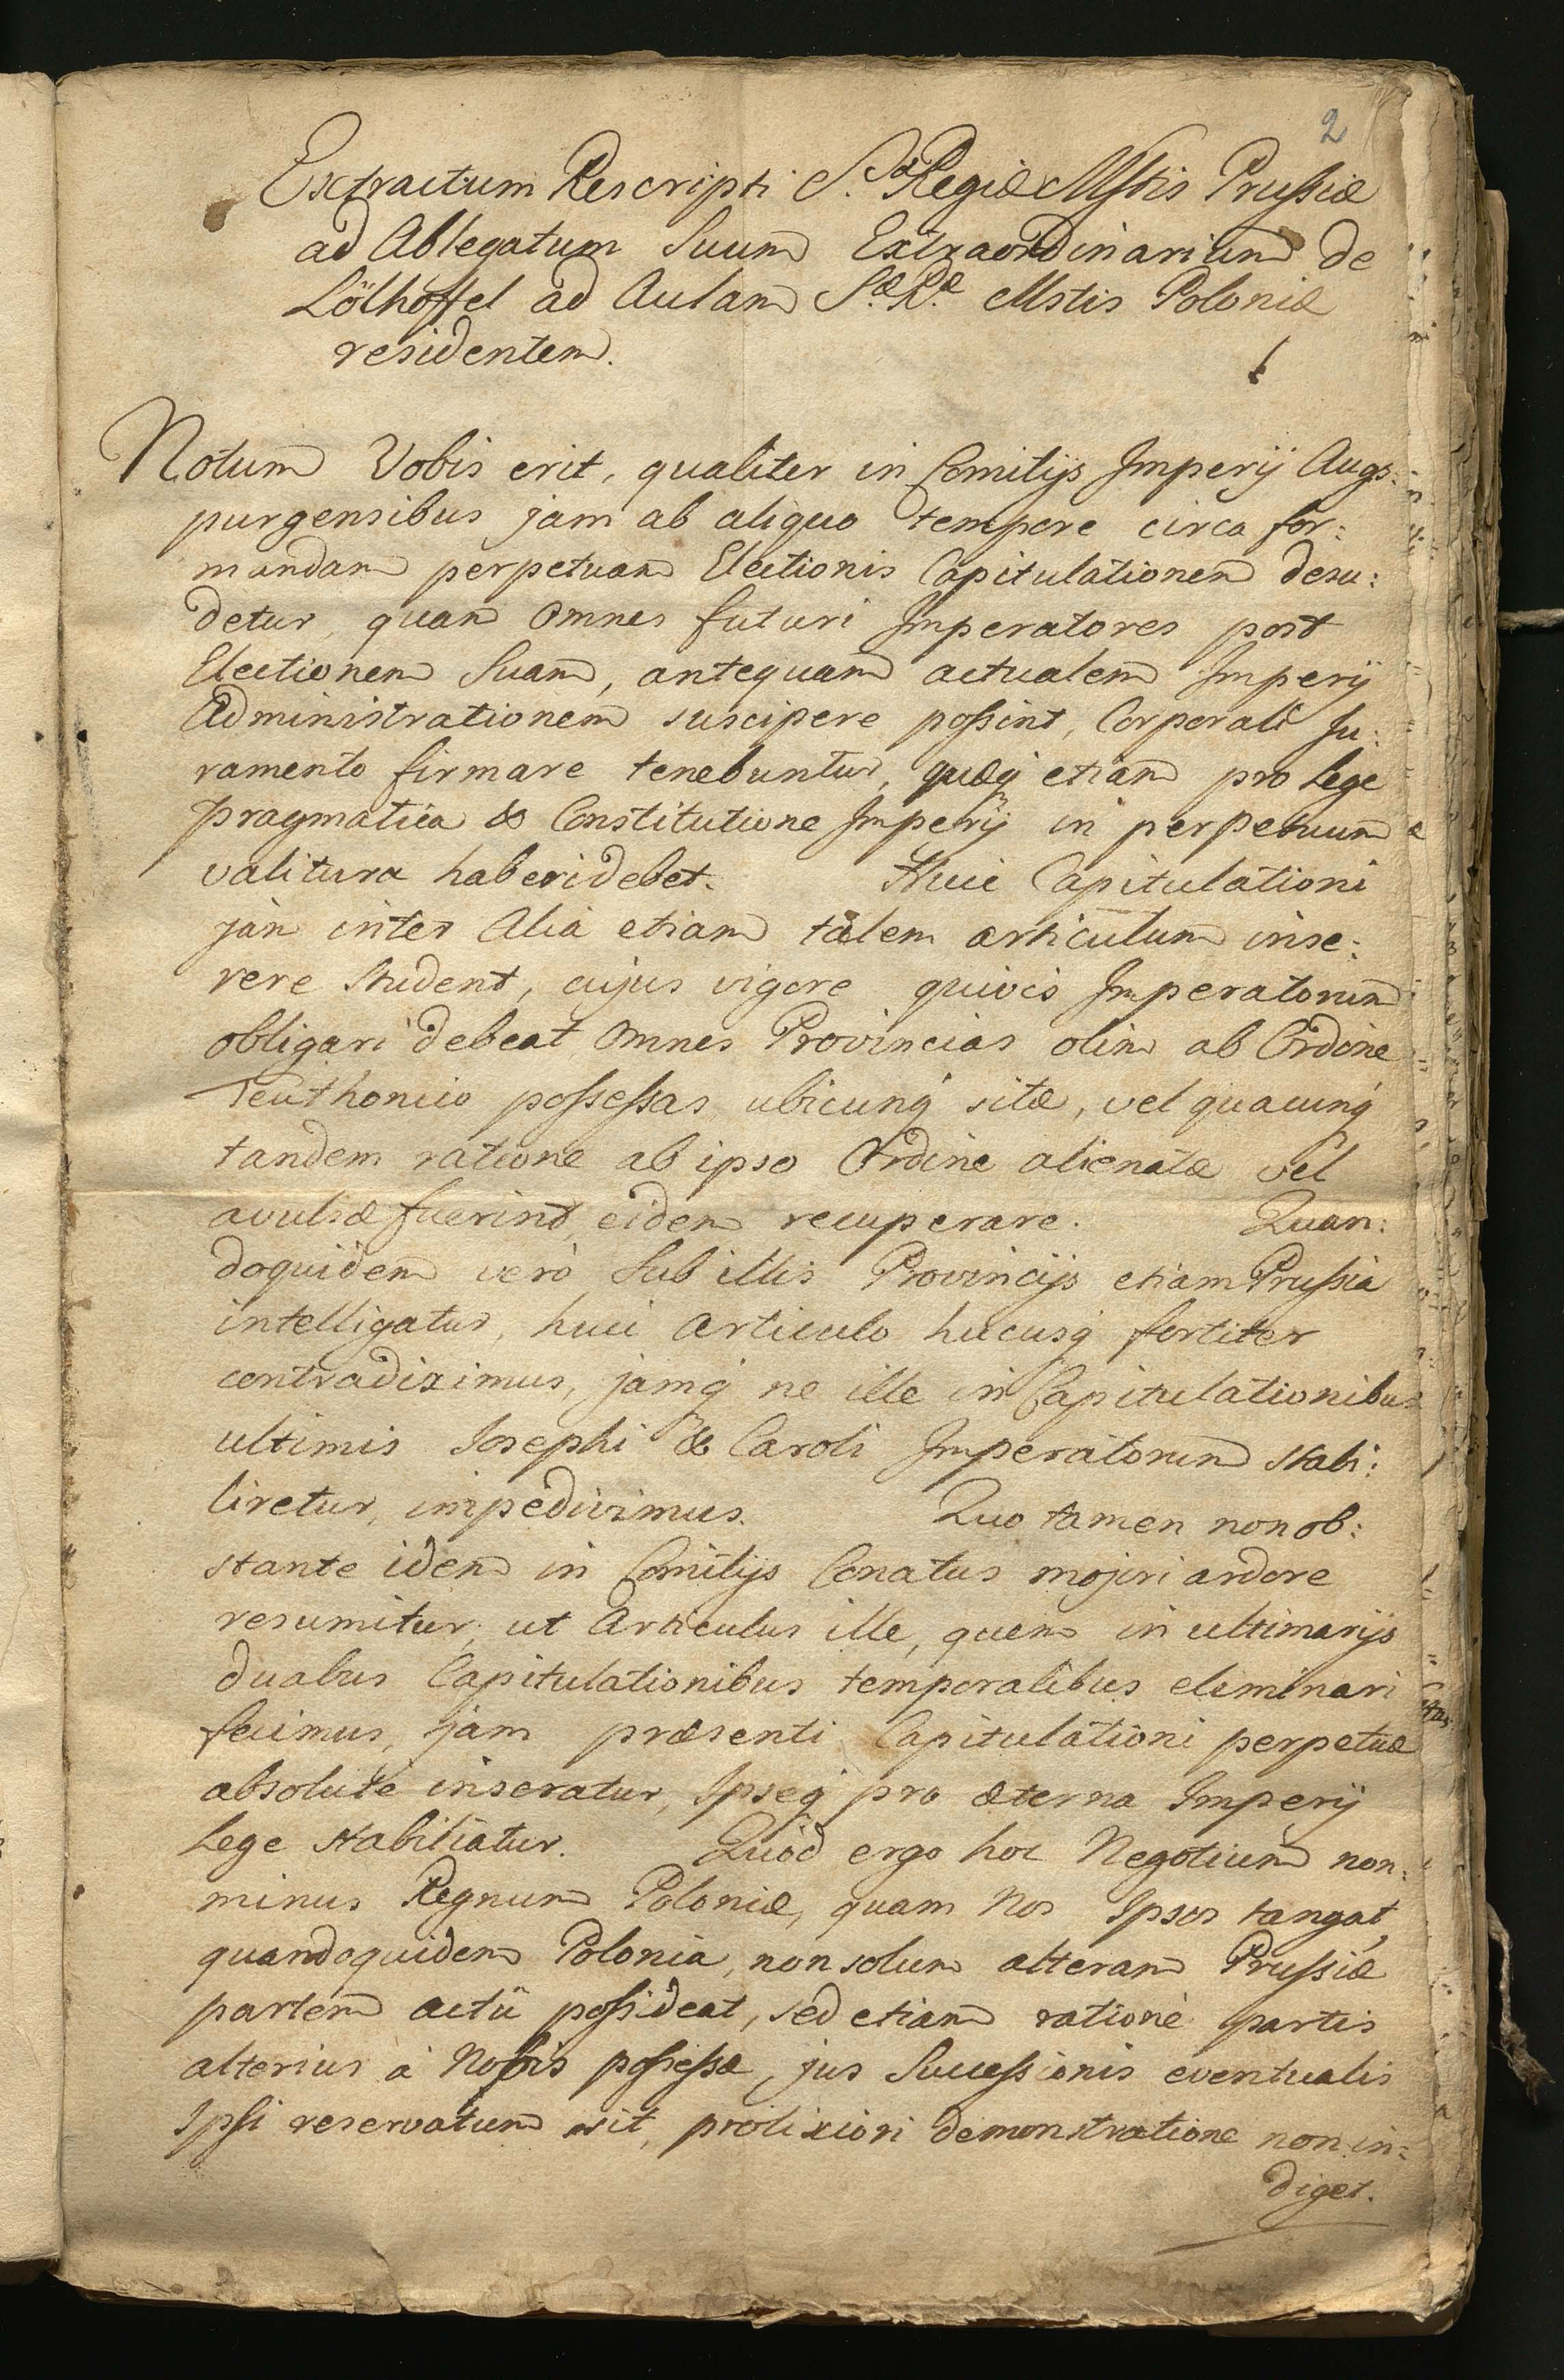 2
Extractum Rescripti S.æ Regiæ Mstis Prussiæ
ad Ablegatum Suum Extraordinarium de
Lölhöffel ad Aulam S.æ R.æ Mstis Poloniæ
residentem.
Notum Vobis erit, qualiter in Comitijs Imperij Augs:
purgensibus jam ab aliquo tempore circa for:
mandam perpetuam Electionis Capitulationem desu:
detur, quam omnes futuri Imperatores post
Electionem Suam, antequam actualem Imperij
Administrationem suscipere possint, Corporali Ju:
ramento firmare tenebuntur, quæq etiam pro Lege
pragmatica & Constitutione Imperij in perpetuum
valitura haberi debet. Huic Capitulationi
jàm inter alia etiam talem articulum inse:
rere student, cujus vigore quivis Imperatorum
obligari debeat omnes Provincias olim ab Ordine
Teuthonico possessas ubicunq sitæ, vel quacunq
tandem ratione ab ipso Ordine alienatæ vel
avulsæ fuerint, eidem recuperare. Quan:
doquidem verò sub illis Provincijs etiam Prussia
intelligatur, huic articulo hucusq fortiter
contradiximus, jamq ne ille in Capitulationibus
ultimis Josephi & Caroli Imperatorum stabi:
liretur, impedivimus. Quo tamen non ob:
stante idem in Comitijs Conatus majori ardore
resumitur, ut Articulus ille, quem in ultimarijs
duabus Capitulationibus temporalibus eliminari
fecimus, jam præsenti Capitulationi perpetuæ
absolutè inseratur, Ipseq pro æterna Imperij
Lege stabiliatur. Quòd ergo hoc Negotium non:
minus Regnum Poloniæ, quam Nos Ipsos tangat,
quandoquidem Polonia, non solum alteram Prussiæ
partem actu possideat, sed etiam ratione partis
alterius à Nobis possessæ, jus Successionis eventualis
Ipsi reservatum sit, prolixiori demonstratione non in:
diget.